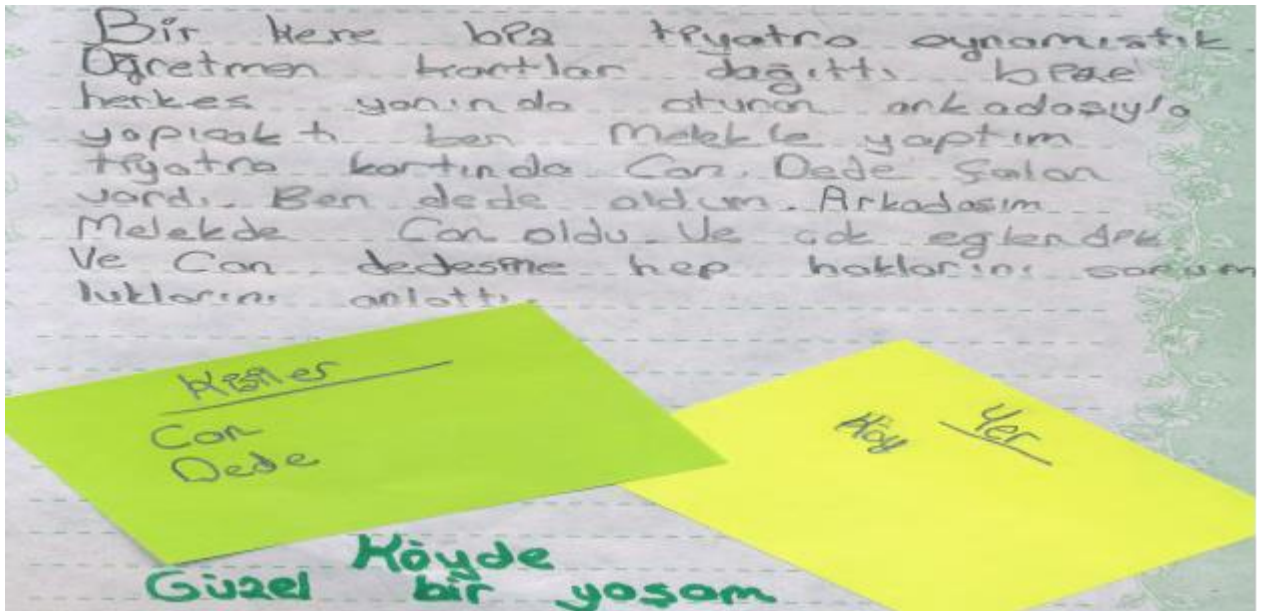 Bir kere biz tiyatro oynamıştık
Öğretmen kartlar dağıttı bize
herkes yanında oturan arkadaşıyla
yapıcaktı ben Melekle yaptım
tiyatro kartında Can, Dede falan
vardı. Ben dede oldum. Arkadaşım
Melekde Can oldu. Ve çok eğlendik
Ve Can dedesine hep haklarını sorum
luklarını anlattı.
Kişiler
Can
Dede
Yer
Köy
Köyde
Güzel bir yaşam